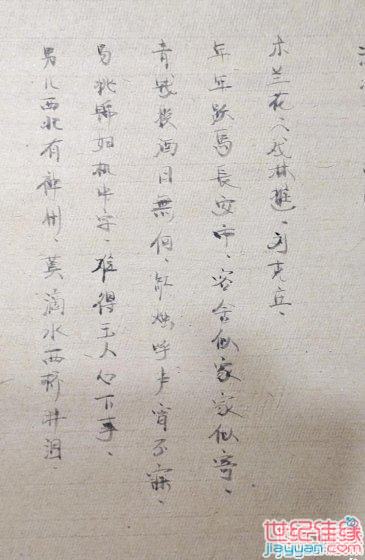 木兰花、戏林推、刘克庄、
年年跃馬長安市、客舍似家家似寄、
青戋换酒日無何、红烛呼卢宵不寐、
易挑锦妇机中字、难得玉人心下事、
男儿西北有神州、莫滴水西桥畔泪
世纪佳缘
jiayuan.com